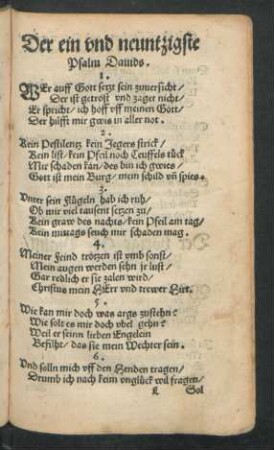 Der ein vnd neuntzigste
Psalm Dauids.
1.
WEr auff Gott setzt sein zuuersicht/
Der ist getrost vnd zaget nicht/
Er spricht/ ich hoff vff meinen Gott/
Der hülfft mir gwis in aller not.
2.
Kein Pestilentz kein Jegers strick/
Kein list/ kein Pfeil noch Teuffels tück
Mir schaden kan/ des bin ich gwies/
Gott ist mein Burg/ mein schild vñ spies.
3.
Vnter sein flügeln hab ich ruh/
Ob mir viel tausent setzen zu/
Kein graw des nachts/ kein Pfeil am tag/
Kein mittags seuch mir schaden mag.
4.
Meiner Feind trotzen ist vmb sonst/
Mein augen werden sehn jr lust/
Gar redlich er sie zalen wird/
Christus mein HErr vnd trewer Hirt.
5.
Wie kan mir doch was args zustehn?
Wie solt es mir doch vbel gehn?
Weil er seinn lieben Engelein
Befilht/ das sie mein Wechter sein.
6.
Vnd solln mich vff den Henden tragen/
Drumb ich nach keim vnglück wil fragen/
Sol